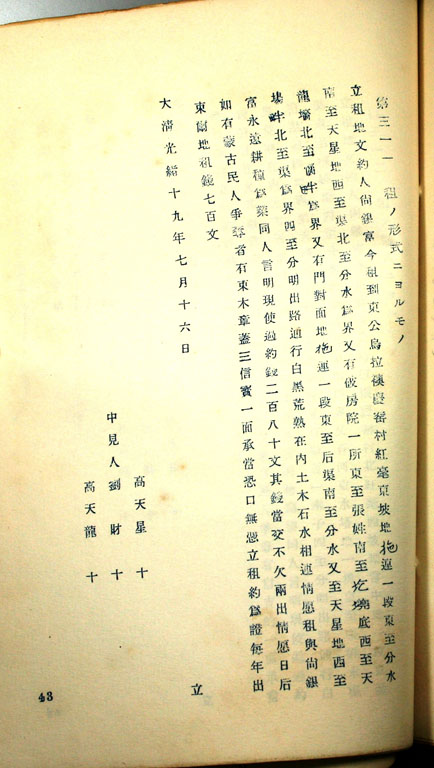 第三一一　租ノ形式ニヨルモノ
立租地文約人尙銀富今租到東公烏拉 村紅毫京坡地拖逗一段東至分水
南至天星地西至渠北至分水爲界又有破房院一所東至張姓南至圪 底西至天
龍墻北至 半爲界又有門對面地拖逗一段東至后渠南至分水又至天星地西至
場半北至渠爲界四至分明出路通行白黑荒熟在內土木石水相連情愿租與尙銀
富永遠耕種爲業同人言明現使過約錢二百八十文其錢當交不欠兩出情愿日后
如有蒙古民人爭 者有東木章蓋三信寶一面承當恐口無憑立租約爲證每年出
東爾地租錢七百文
大淸光緒十九年七月十六日
立
高天星　十
中見人劉財　十
高天龍　十
43